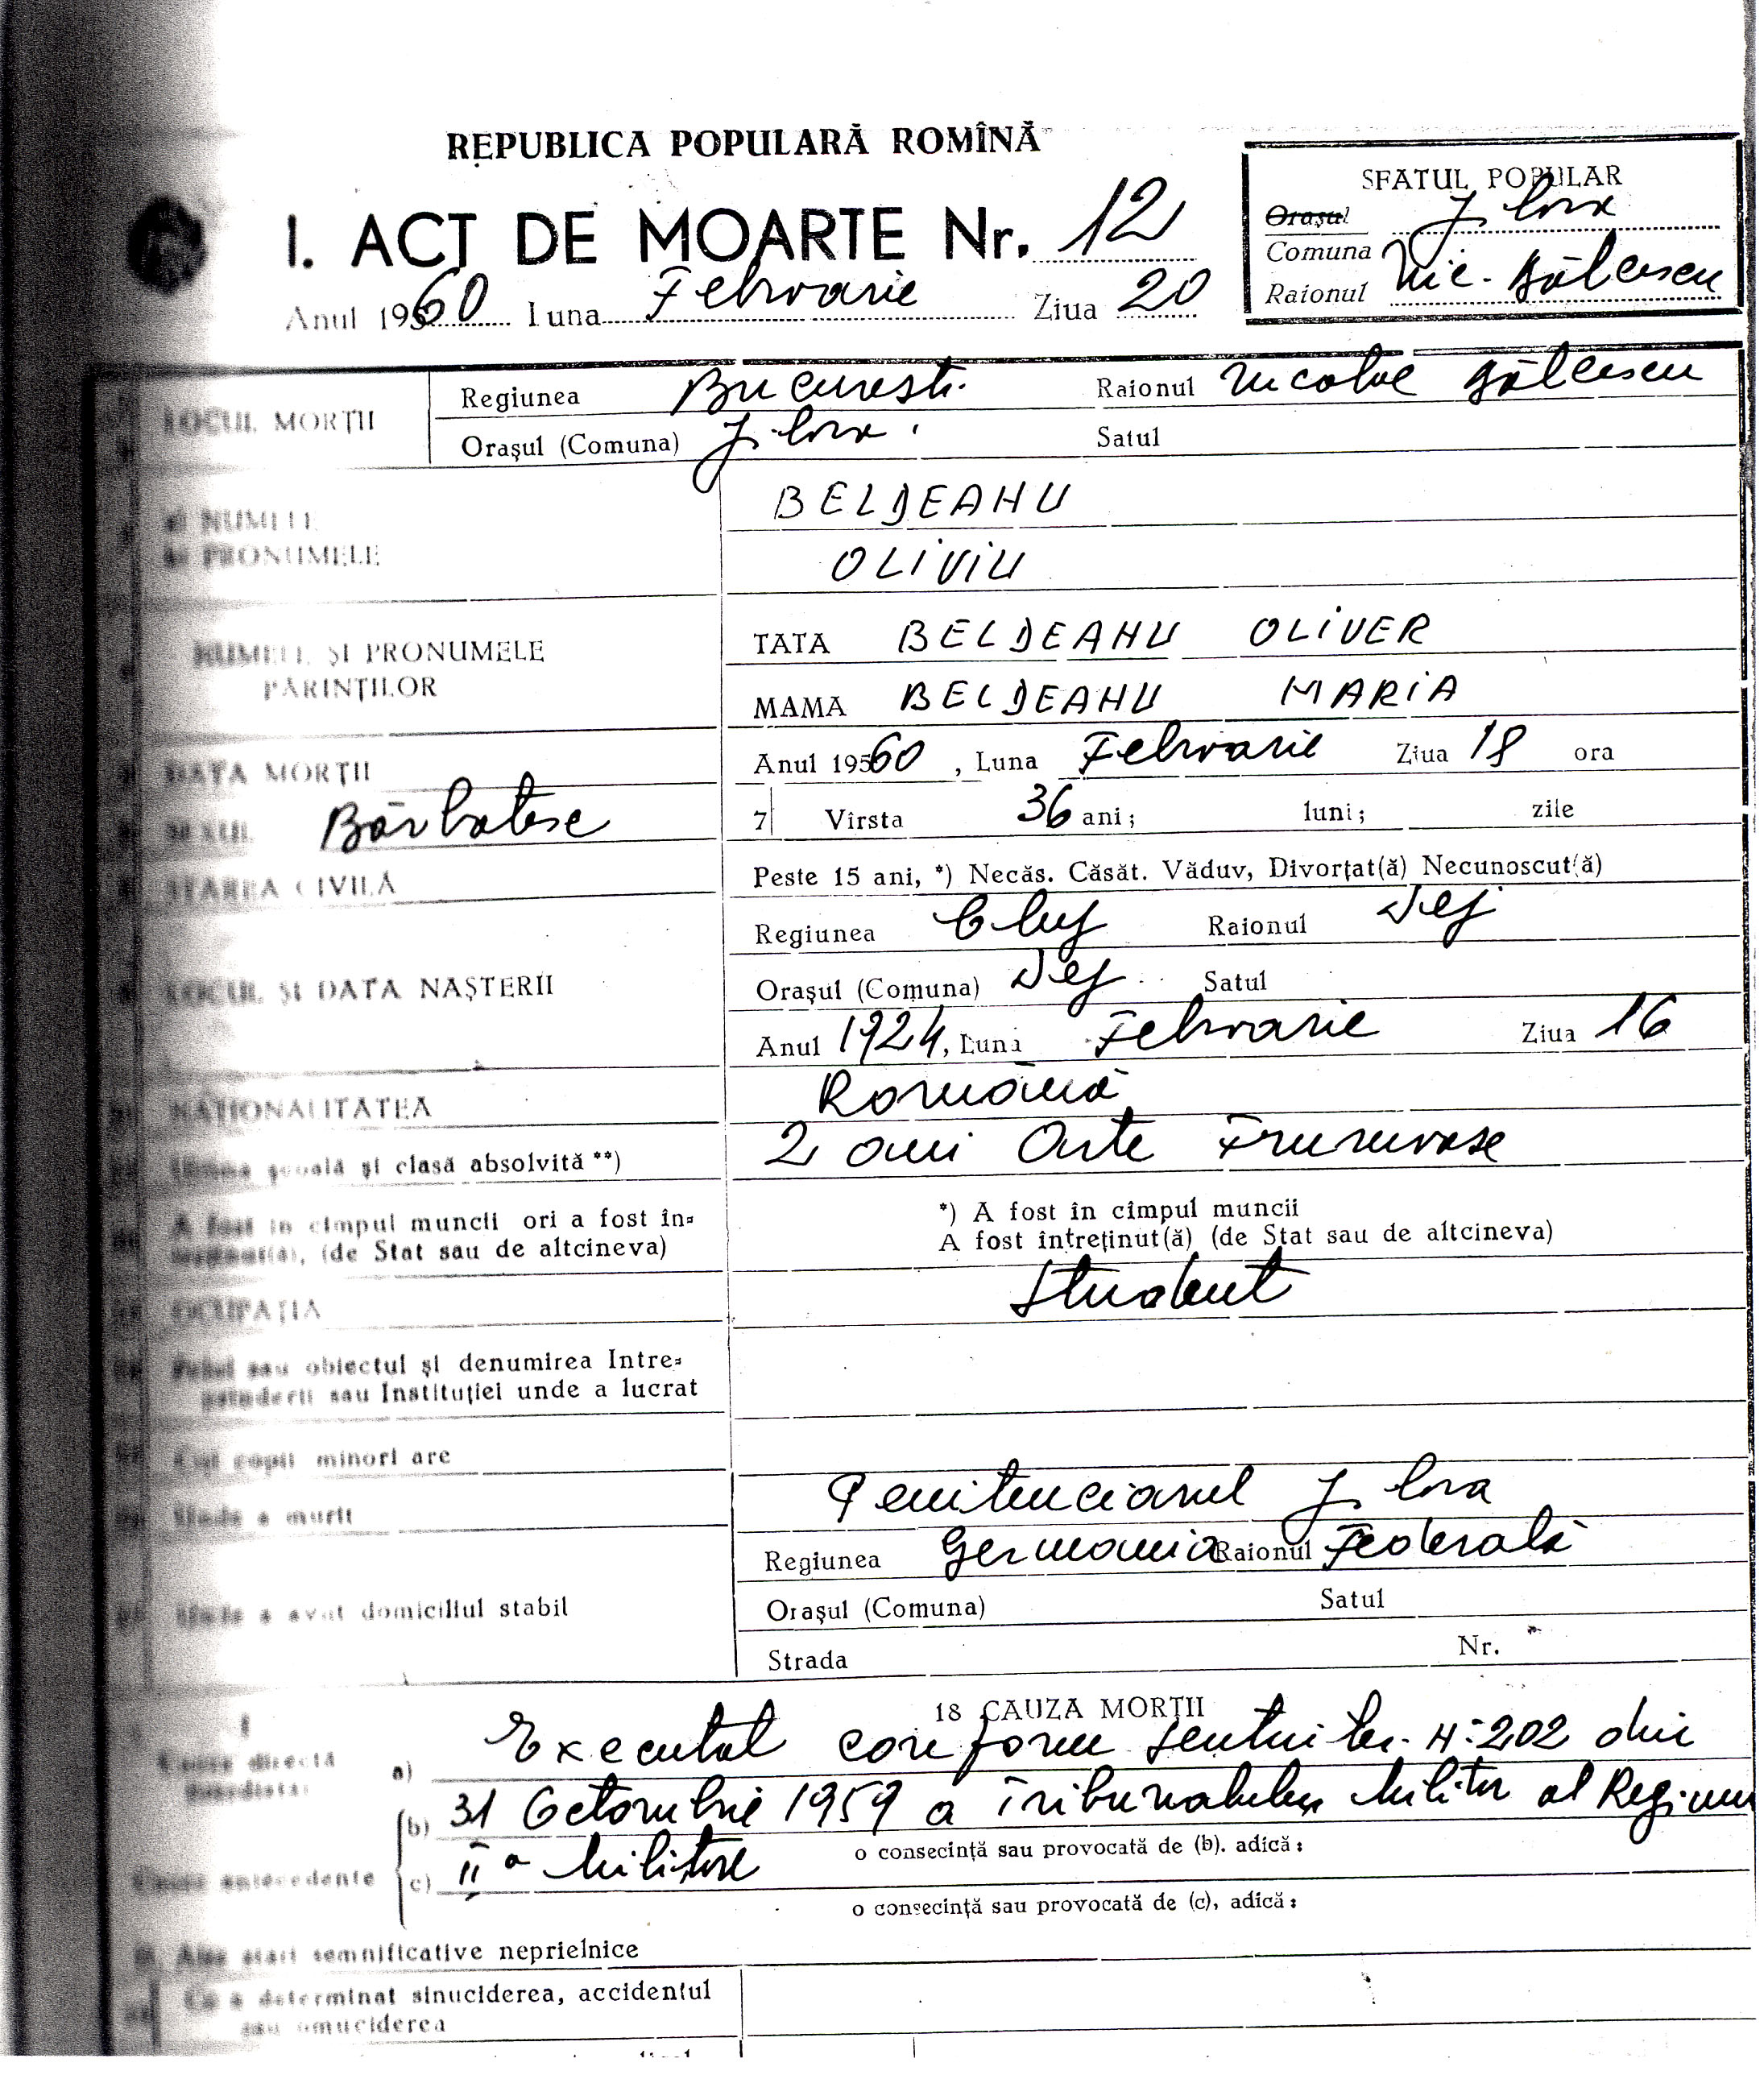 REPUBLICA POPULARĂ ROMÎNĂ
I. ACT DE MOARTE Nr. 12
Anul 195 60 Luna Februarie Ziua 20
SFATUL POPULAR
Orașul Jilava
Comuna
Raionul Nic. Bălcescu
LOCUL MORȚII
Regiunea București Raionul Nicolae Bălcescu
Orașul (Comuna) Jilava Satul
a) NUMELE BELDEANU
b) PRONUMELE OLIVIU
NUMELE ȘI PRONUMELE PĂRINȚILOR
TATA BELDEANU OLIVER
MAMA BELDEANU MARIA
DATA MORȚII Anul 195 60, Luna Februarie Ziua 18 ora
SEXUL Bărbătesc 7 Vîrsta 36 ani; luni; zile
STAREA CIVILĂ Peste 15 ani, *) Necăs. Căsăt. Văduv, Divorțat(ă) Necunoscut(ă)
LOCUL ȘI DATA NAȘTERII
Regiunea Cluj Raionul Dej
Orașul (Comuna) Dej Satul
Anul 1924, Luna Februarie Ziua 16
NAȚIONALITATEA Română
Ultima școală și clasă absolvită **) 2 ani Arte Frumoase
A fost în cîmpul muncii ori a fost în=
(de Stat sau de altcineva)
*) A fost în cîmpul muncii
A fost întreținut(ă) (de Stat sau de altcineva)
OCUPAȚIA Student
Felul sau obiectul și denumirea Intre=
prinderii sau Instituției unde a lucrat
Cîți copii minori are
Unde a murit Penitenciarul Jilava
Unde a avut domiciliul stabil
Regiunea Germania Raionul Federală
Orașul (Comuna) Satul
Strada Nr.
18 CAUZA MORȚII
Cauza directă
a) Executat conform sentinței Nr. 202 din
(b) 31 Octombrie 1959 a Tribunalului Militar al Regiunii
o consecință sau provocată de (b). adică:
Cauze antecedente
(c) II a Militare
o consecință sau provocată de (c), adică:
Alte stări semnificative neprielnice
Ce a determinat sinuciderea, accidentul
sau omuciderea